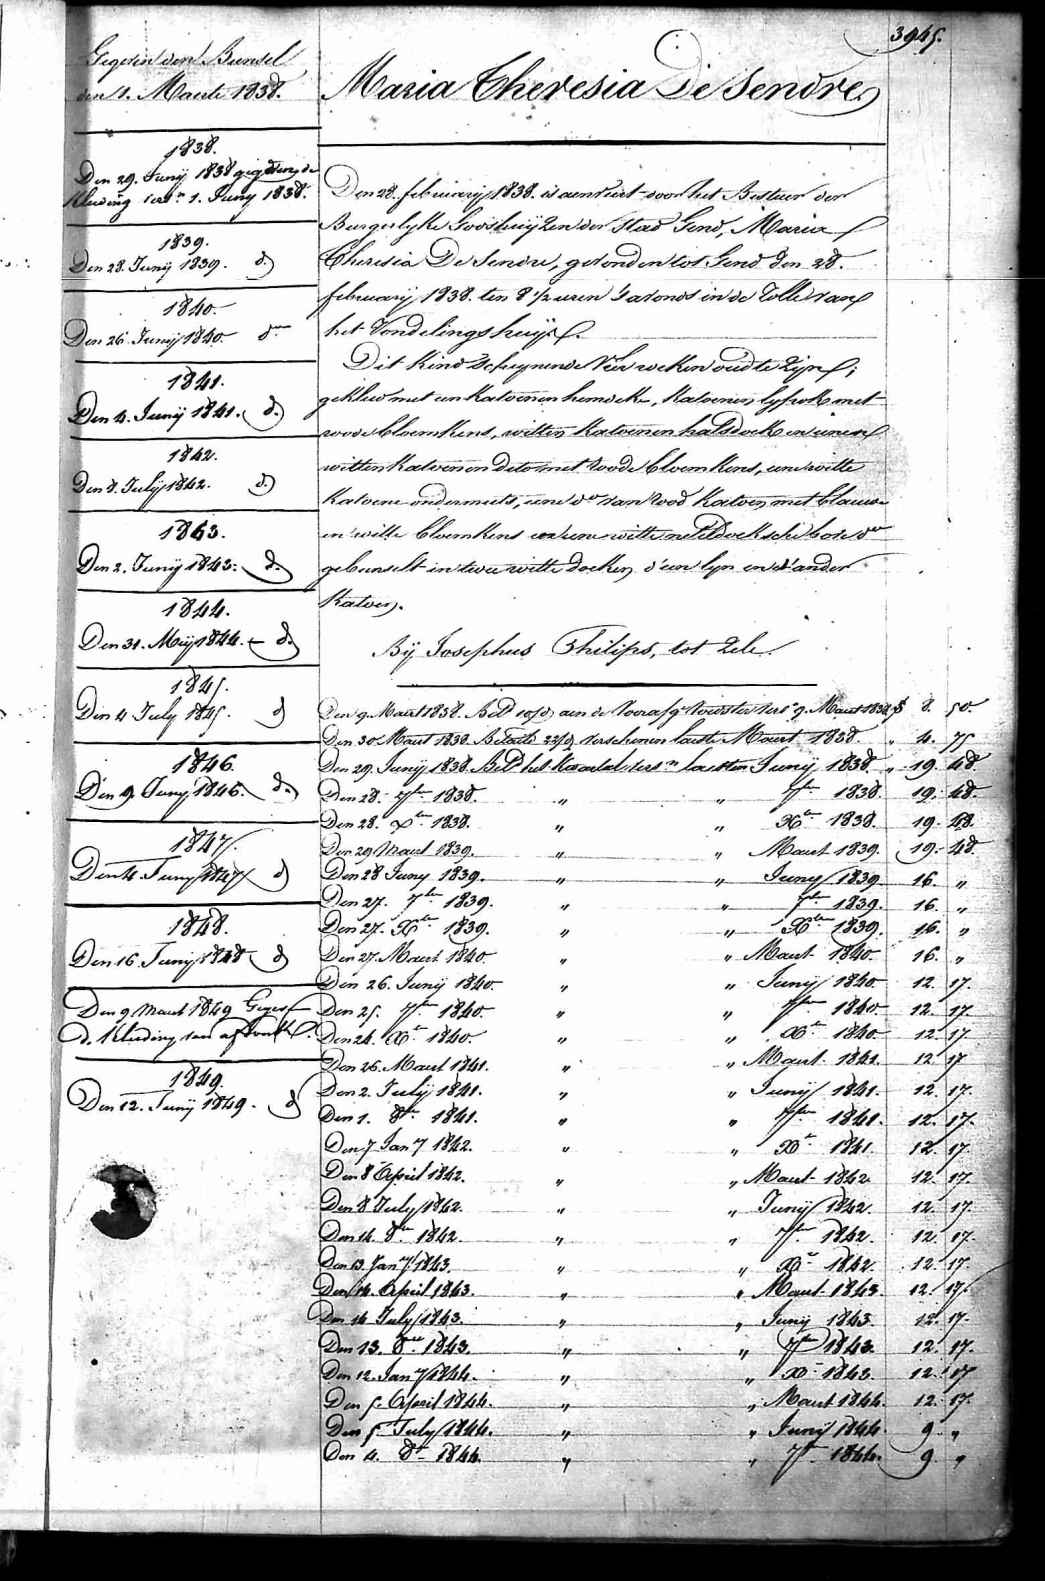 3945.
Gegeven den Bunsel
den 1. Maerte 1838.
Maria Theresia De Sendre
1838.
Den 29. Junij 1838 gegeven de
Kleeding vers.n 1. Juny 1838.
1839.
Den 28. Junij 1839. d.
1840.
Den 26. Junij 1840 d.
1841.
Den 4. Junij 1841. d.
1842.
Den 8. Julij 1842. d.
1843.
Den 2. Junij 1843. d.
1844.
Den 31. Meij 1844. d.
1845.
Den 4 July 1845. d
1846.
Den 9. Juny 1846. d.
1847.
Den 4. Juny 1847 d
1848.
Den 16. Junij 1848 d
Den 9 Maert 1849 Gegev
d. Kleeding van
1849.
Den 12. Junij 1849. d
Den 28. februarij 1838. is aenveirt door het Bestuer der
Burgerlyke Godshuijzen der Stad Gend, Maria
Theresia De Sendre, gevonden tot Gend den 28.
februarij 1838. ten 8 1/2 uren 's avonds in de Rolle van
het Vondelingshuijs.
Dit Kind scheynende vier weken oud te zijn;
gekleed met een katoenen hemdeke, Katoenen lyfrok met
roode bloemkens, witten katoenen halsdoek en eenen
witten katoenen dito met roode bloemkens, eene witte
Katoene ondermuts, eene d.o van rood Katoen met blauwe
en witte bloemkens en eene witte neteldoeksche bove d.o
gebunselt in twee witte doeken, d'een lyn en d'ander
Katoen.
Bij Josephus Philips, tot Zele
Den 9. Maert 1838. Bet.d aen de Voedster vers. 9. Maert 1838. 8. 50.
Den 30 Maert 1838. Betaelt verschenen laeste Maert 1838. " 4. 75
Den 29. Junij 1838. Bet.d het Kwartael vers.n laesten Junij 1838. " 19. 48.
Den 28. 7bre 1838. " " 7bre 1838 19. 48.
Den 28. Xbre 1838. " " Xbre 1838. 19. 48.
Den 29 Maert 1839. " " Maert 1839. 19. 48.
Den 28 Juny 1839. " " Juny 1839 16. "
Den 27. 7bre 1839. " " 7bre 1839. 16. "
Den 27. Xbre 1839. " " Xbre 1839. 16. "
Den 27. Maert 1840. " " Maert 1840. 16. "
Den 26. Junij 1840. " " Junij 1840. 12. 17.
Den 25. 7bre 1840. " " 7bre 1840. 12. 17.
Den 24. Xbre 1840. " " Xbre 1840. 12. 17
Den 26. Maert 1841. " " Maert 1841. 12. 17
Den 2. Julij 1841. " " Junij 1841. 12. 17.
Den 1. 8bre 1841. " " 7bre 1841. 12. 17.
Den 7 Jan.y 1842. " " Xbre 1841. 12. 17.
Den 8 April 1842. " " Maert 1842. 12. 17.
Den 8 July 1842. " " Junij 1842. 12. 17.
Den 14. 8bre 1842. " " 7bre 1842. 12. 17.
Den 13. Jan.y 1843. " " Xbre 1842. 12. 17.
Den 14. April 1843. " " Maert 1843. 12. 17.
Den 14 July 1843. " " Junij 1843. 12. 17.
Den 13. 8bre 1843. " " 7bre 1843. 12. 17.
Den 12. Jan.y 1844. " " Xbre 1843. 12. 17
Den 5. April 1844. " " Maert 1844. 12. 17.
Den 5. July 1844. " " Junij 1844. 9. "
Den 4. 8bre 1844. " " 7bre 1844. 9. "